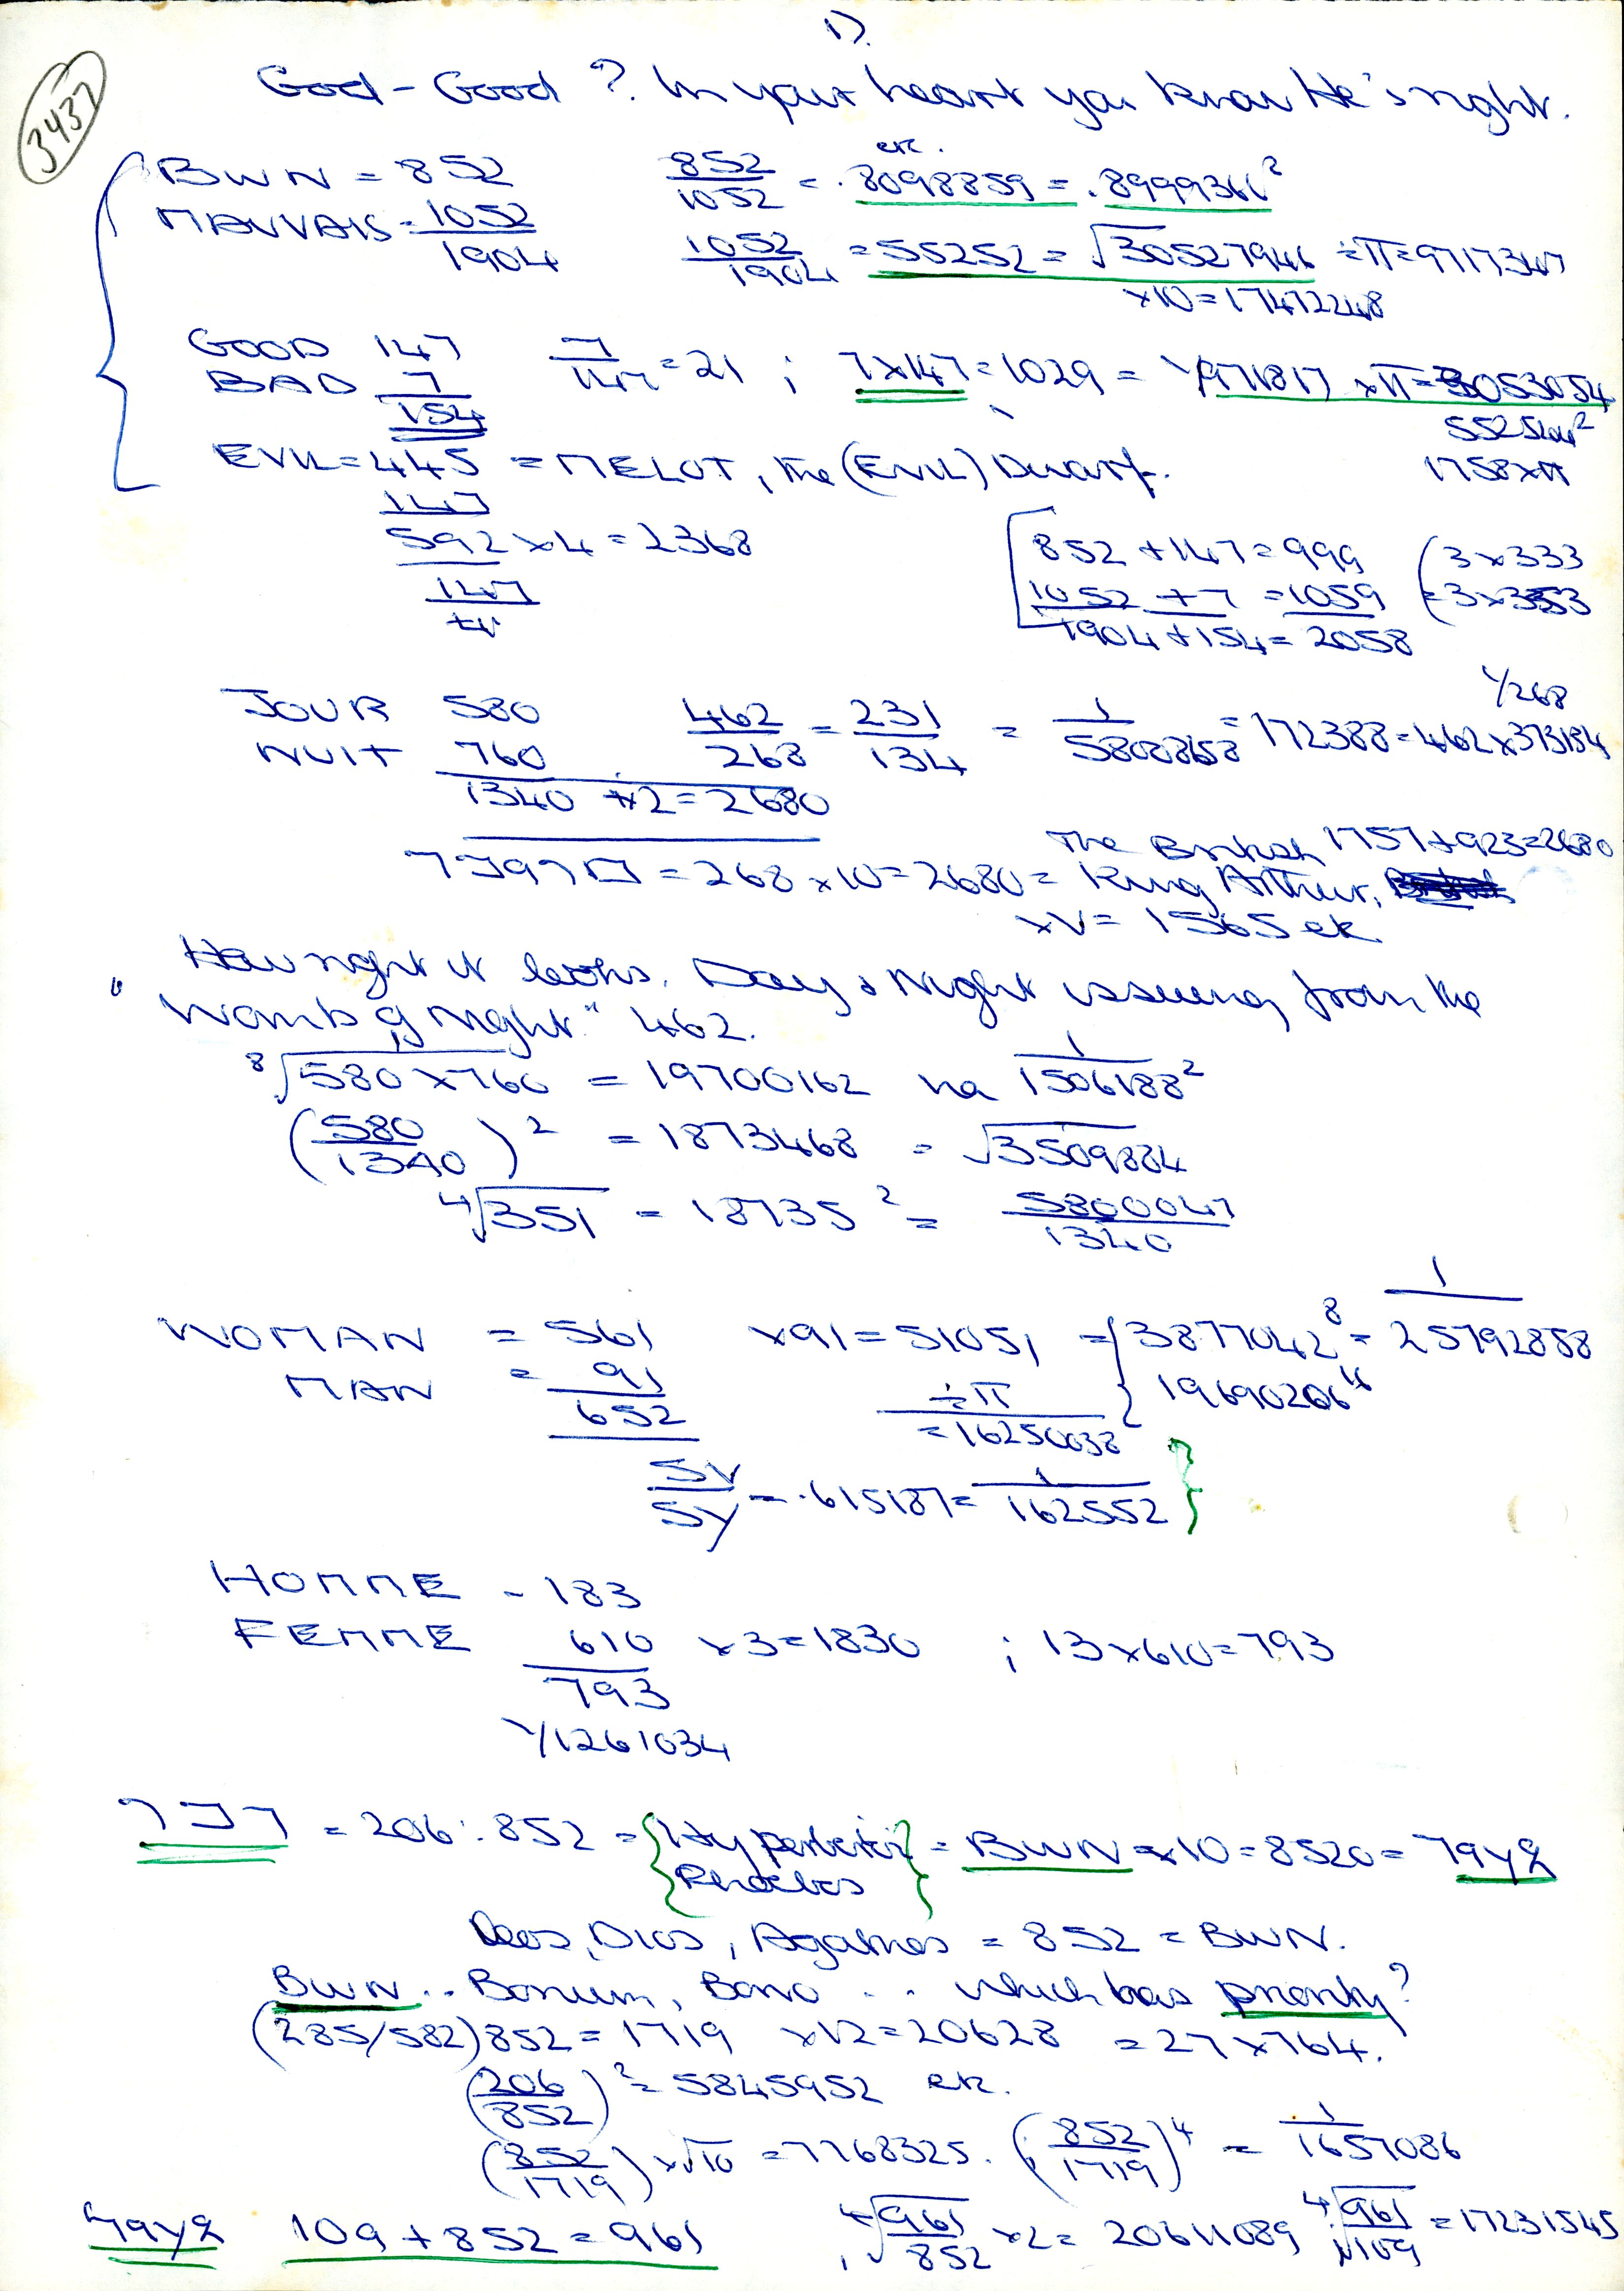 1).
3437
God - Good ? In your heart you know He's right.
BWN = 852   852/1052 = .8098859 etc. = .8999366²
MAUVAIS = 1052
1904   1052/1904 = 55252 = √30527946 ÷π=9717347
×10=17472248
GOOD 147   7/147 = 21 ; 7×147=1029 = 1/971817 ×π=3053054
BAD 7
154
55254²
EVIL=445 = MELOT, the (EVIL) Dwarf.   1758×π
147
592 ×4=2368
147
852+147=999 (3×333
1052+7=1059 =3×353
1904+154=2058
1/268
JOUR 580   462/268 = 231/134 = 1/5800868 = 172388=462×373184
NUIT 760
1340 ×2=2680
The British 1757+923=2680
= 268×10=2680= King Arthur,
×V= 1565 etc
"How right it looks. Day & Night issuing from the
Womb of Night." 462.
⁸√580×760 = 19700162   1/1506188²
(580/1340)² = 1873468 = √3509884
⁴√351 = 18735² = 5800047/1340
WOMAN = 561 ×91=51051 = 3877042⁸ = 1/25792858
MAN = 91   ÷π   19690206
652   =16250038
SV/SY = .615187= 1/162552
HOMME - 183
FEMME 610 ×3=1830 ; 13×610=793
793
1/1261034
= 206 : 852 = { Phoebos } = BWN ×10=8520=
Deos, Dios, Agathos = 852 = BWN.
BWN .. Bonum, Bono .. which has priority?
(285/582)852=1719 ×12=20628 =27×764.
(206/852)²= 5845952 etc.
(852/1719)×√10 =7768325. (852/1719)⁴ = 1/1657086
109+852=961   ⁴√961/852 ×2= 20611089   ⁴√961/109 =17231545